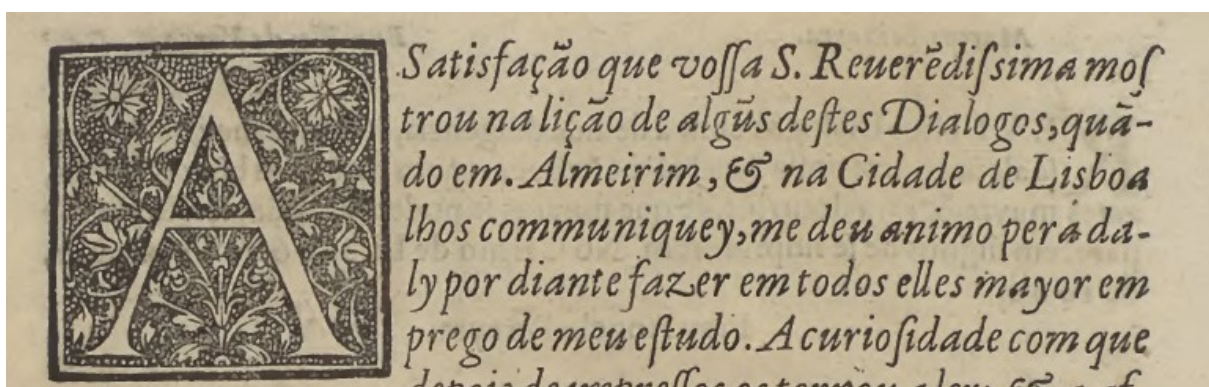 A Satisfação que voſſa S. Reuerẽdiſsima moſ
trou na lição de algũs deſtes Dialogos, quã-
do em. Almeirim, & na Cidade de Lisboa
lhos communiquey, me deu animo pera da-
ly por diante fazer em todos elles mayor em
prego de meu eſtudo. A curioſidade com que